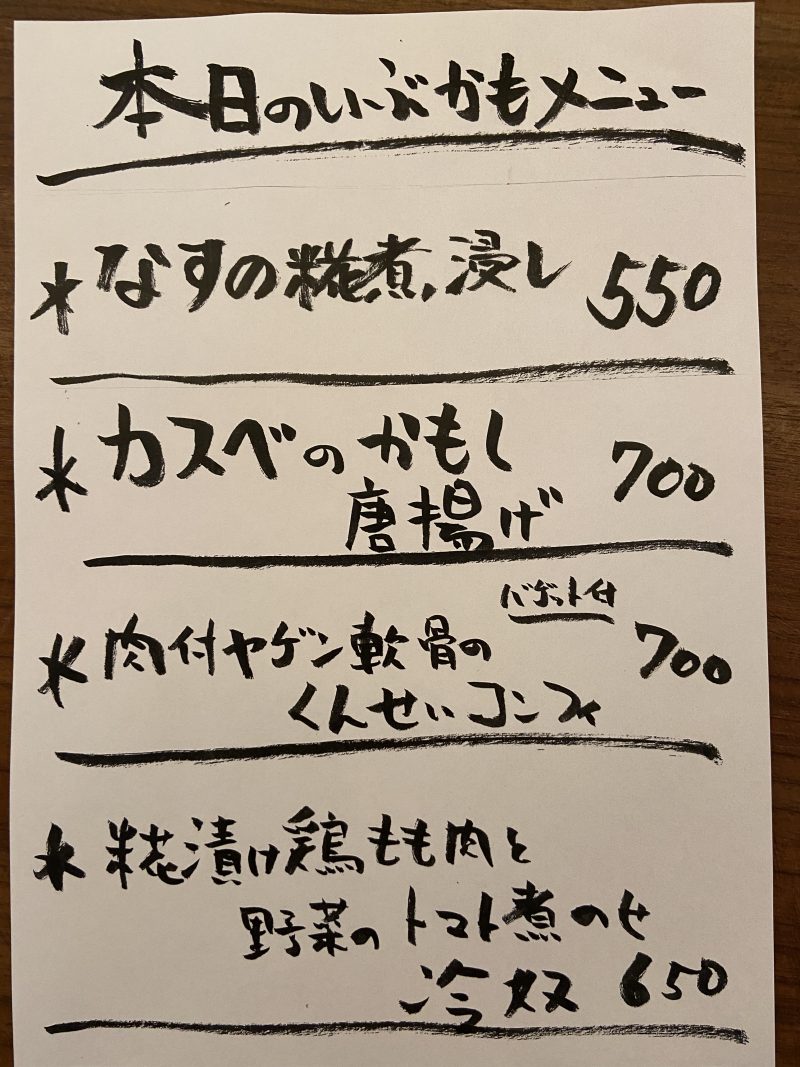 本日のいぶかもメニュー
* なすの糀煮浸し 550
* カスベのかもし
唐揚げ 700
バゲット付
* 肉付ヤゲン軟骨の 700
くんせいコンフィ
* 糀漬け鶏もも肉と
野菜のトマト煮のせ
冷奴 650